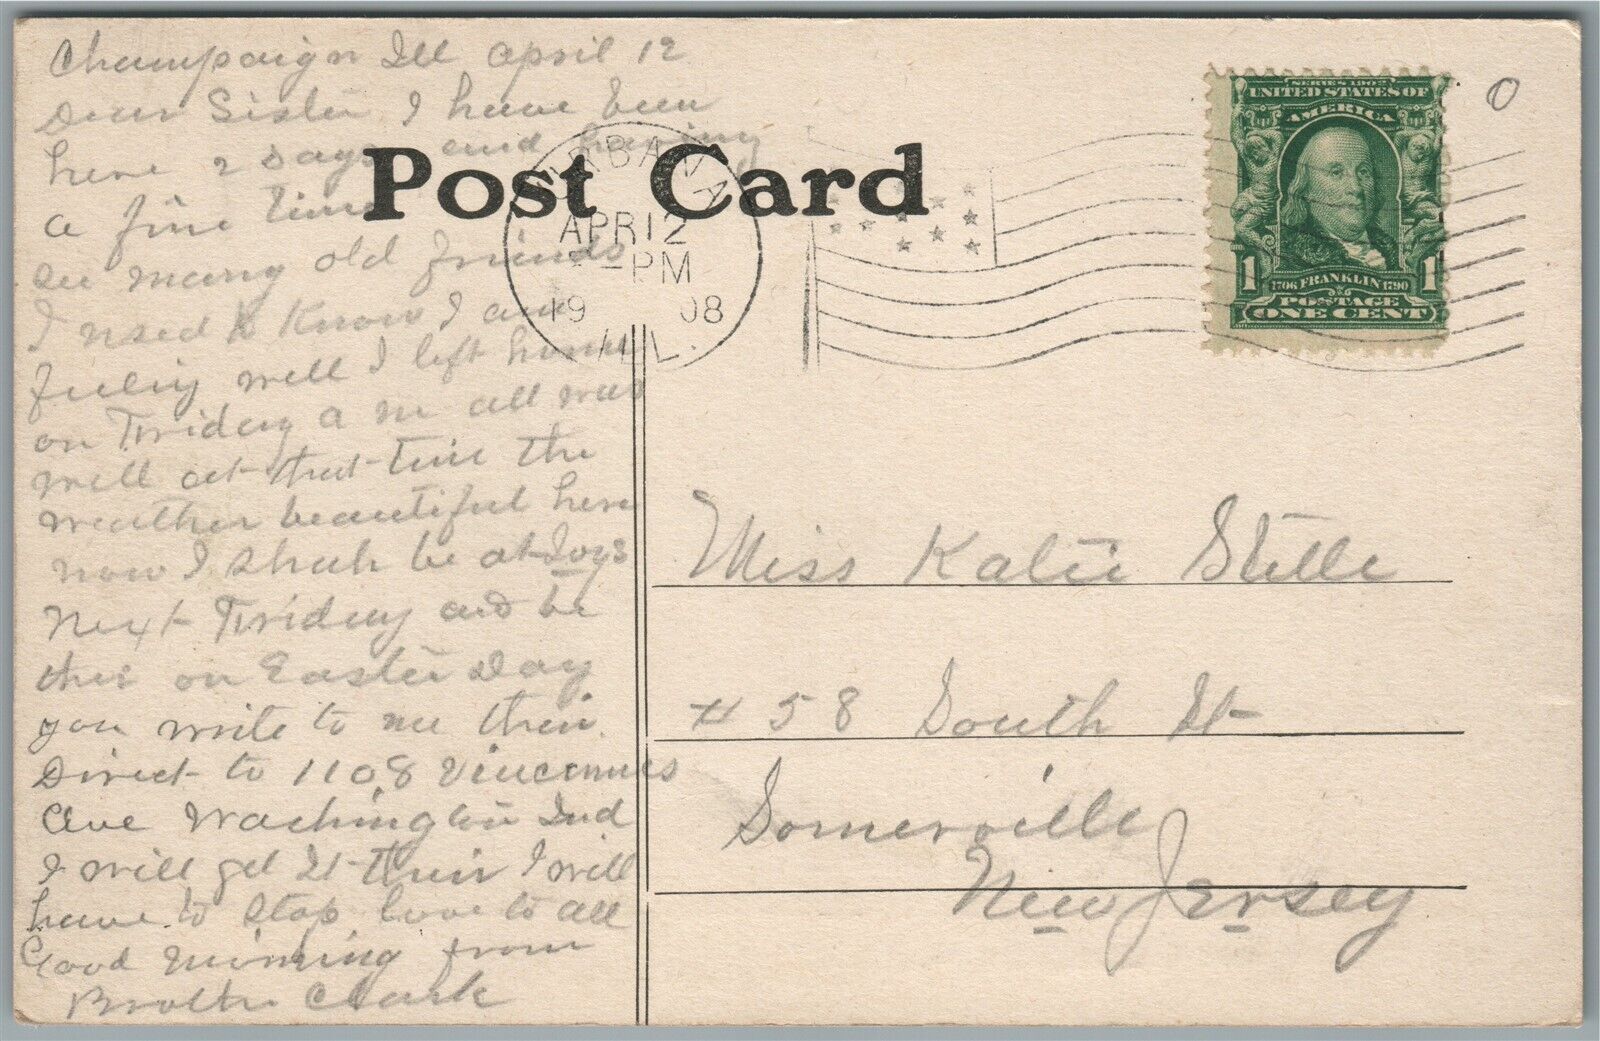 Champaign Ill April 12
Dear Sister I have been
here 2 days and having
a fine time
see many old friends
I used to Know I am
feeling well I left home
on Friday a m all was
well at that time the
weather beautiful here
now I shall be at Joys
Next Friday and be
thir on Easter Day
you write to me their.
Direct to 1108 Vincennes
Ave Washington Ind
I will get It their I will
have to stop love to all
Good Morning from
Brother Clark
Post Card
URBANA
APR 12
-PM
1908
ILL.
SERIES 1902
UNITED STATES OF
AMERICA
1 1706 FRANKLIN 1790 1
POSTAGE
ONE CENT
0
Miss Katie Stelle
# 58 South St
Somerville
New Jersey